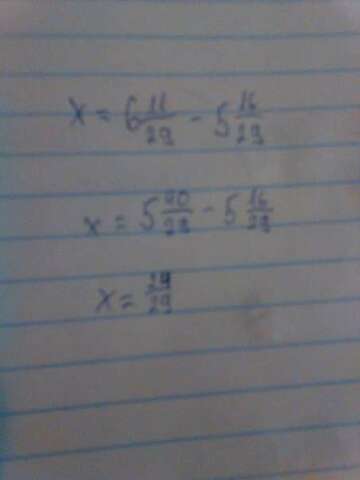 x = 6 11/29 - 5 16/29
x = 5 40/29 - 5 16/29
x = 24/29